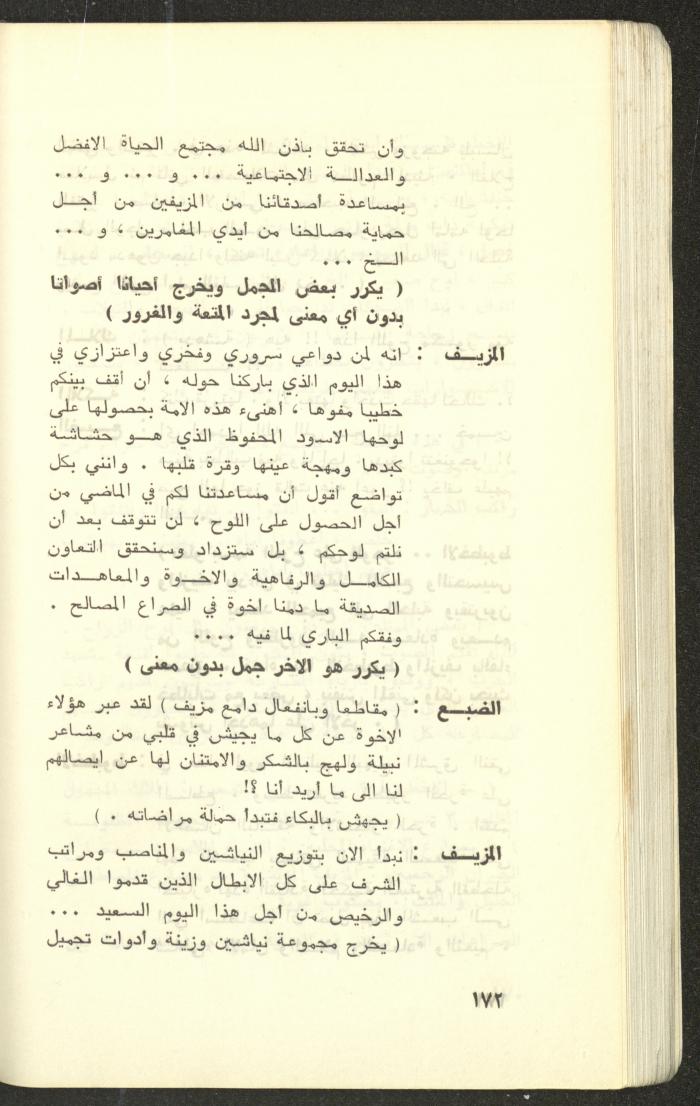 وأن تحقق باذن الله مجتمع الحياة الافضل
والعدالــة الاجتماعية ... و ... و ...
بمساعدة أصدقائنا من المزيفين من أجــل
حماية مصالحنا من أيدي المغامرين ، و ...
الــخ ...
( يكرر بعض الجمل ويخرج أحيانا أصواتا
بدون أي معنى لمجرد المتعة والغرور )
المزيــف : انه لمن دواعي سروري وفخري واعتزازي في
هذا اليوم الذي باركنا حوله ، أن أقف بينكم
خطيبا مفوها ، أهنىء هذه الامة بحصولها على
لوحها الاسود المحفوظ الذي هــو حشاشة
كبدها ومهجة عينها وقرة قلبها . وانني بكل
تواضع أقول أن مساعدتنا لكم في الماضي من
أجل الحصول على اللوح ، لن تتوقف بعد أن
نلتم لوحكم ، بل ستزداد وسنحقق التعاون
الكامــل والرفاهية والاخــوة والمعاهــدات
الصديقة ما دمنا اخوة في الصراع المصالح .
وفقكم الباري لما فيه ....
( يكرر هو الاخر جمل بدون معنى )
الضبــع : ( مقاطعا وبانفعال دامع مزيف ) لقد عبر هؤلاء
الاخوة عن كل ما يجيش في قلبي من مشاعر
نبيلة ولهج بالشكر والامتنان لها عن ايصالهم
لنا الى ما أريد أنا ؟!
( يجهش بالبكاء فتبدأ حمالة مراضاته . )
المزيــف : نبدأ الان بتوزيع النياشين والمناصب ومراتب
الشرف على كل الابطال الذين قدموا الغالي
والرخيص من أجل هذا اليوم السعيد ...
( يخرج مجموعة نياشين وزينة وأدوات تجميل
١٧٢